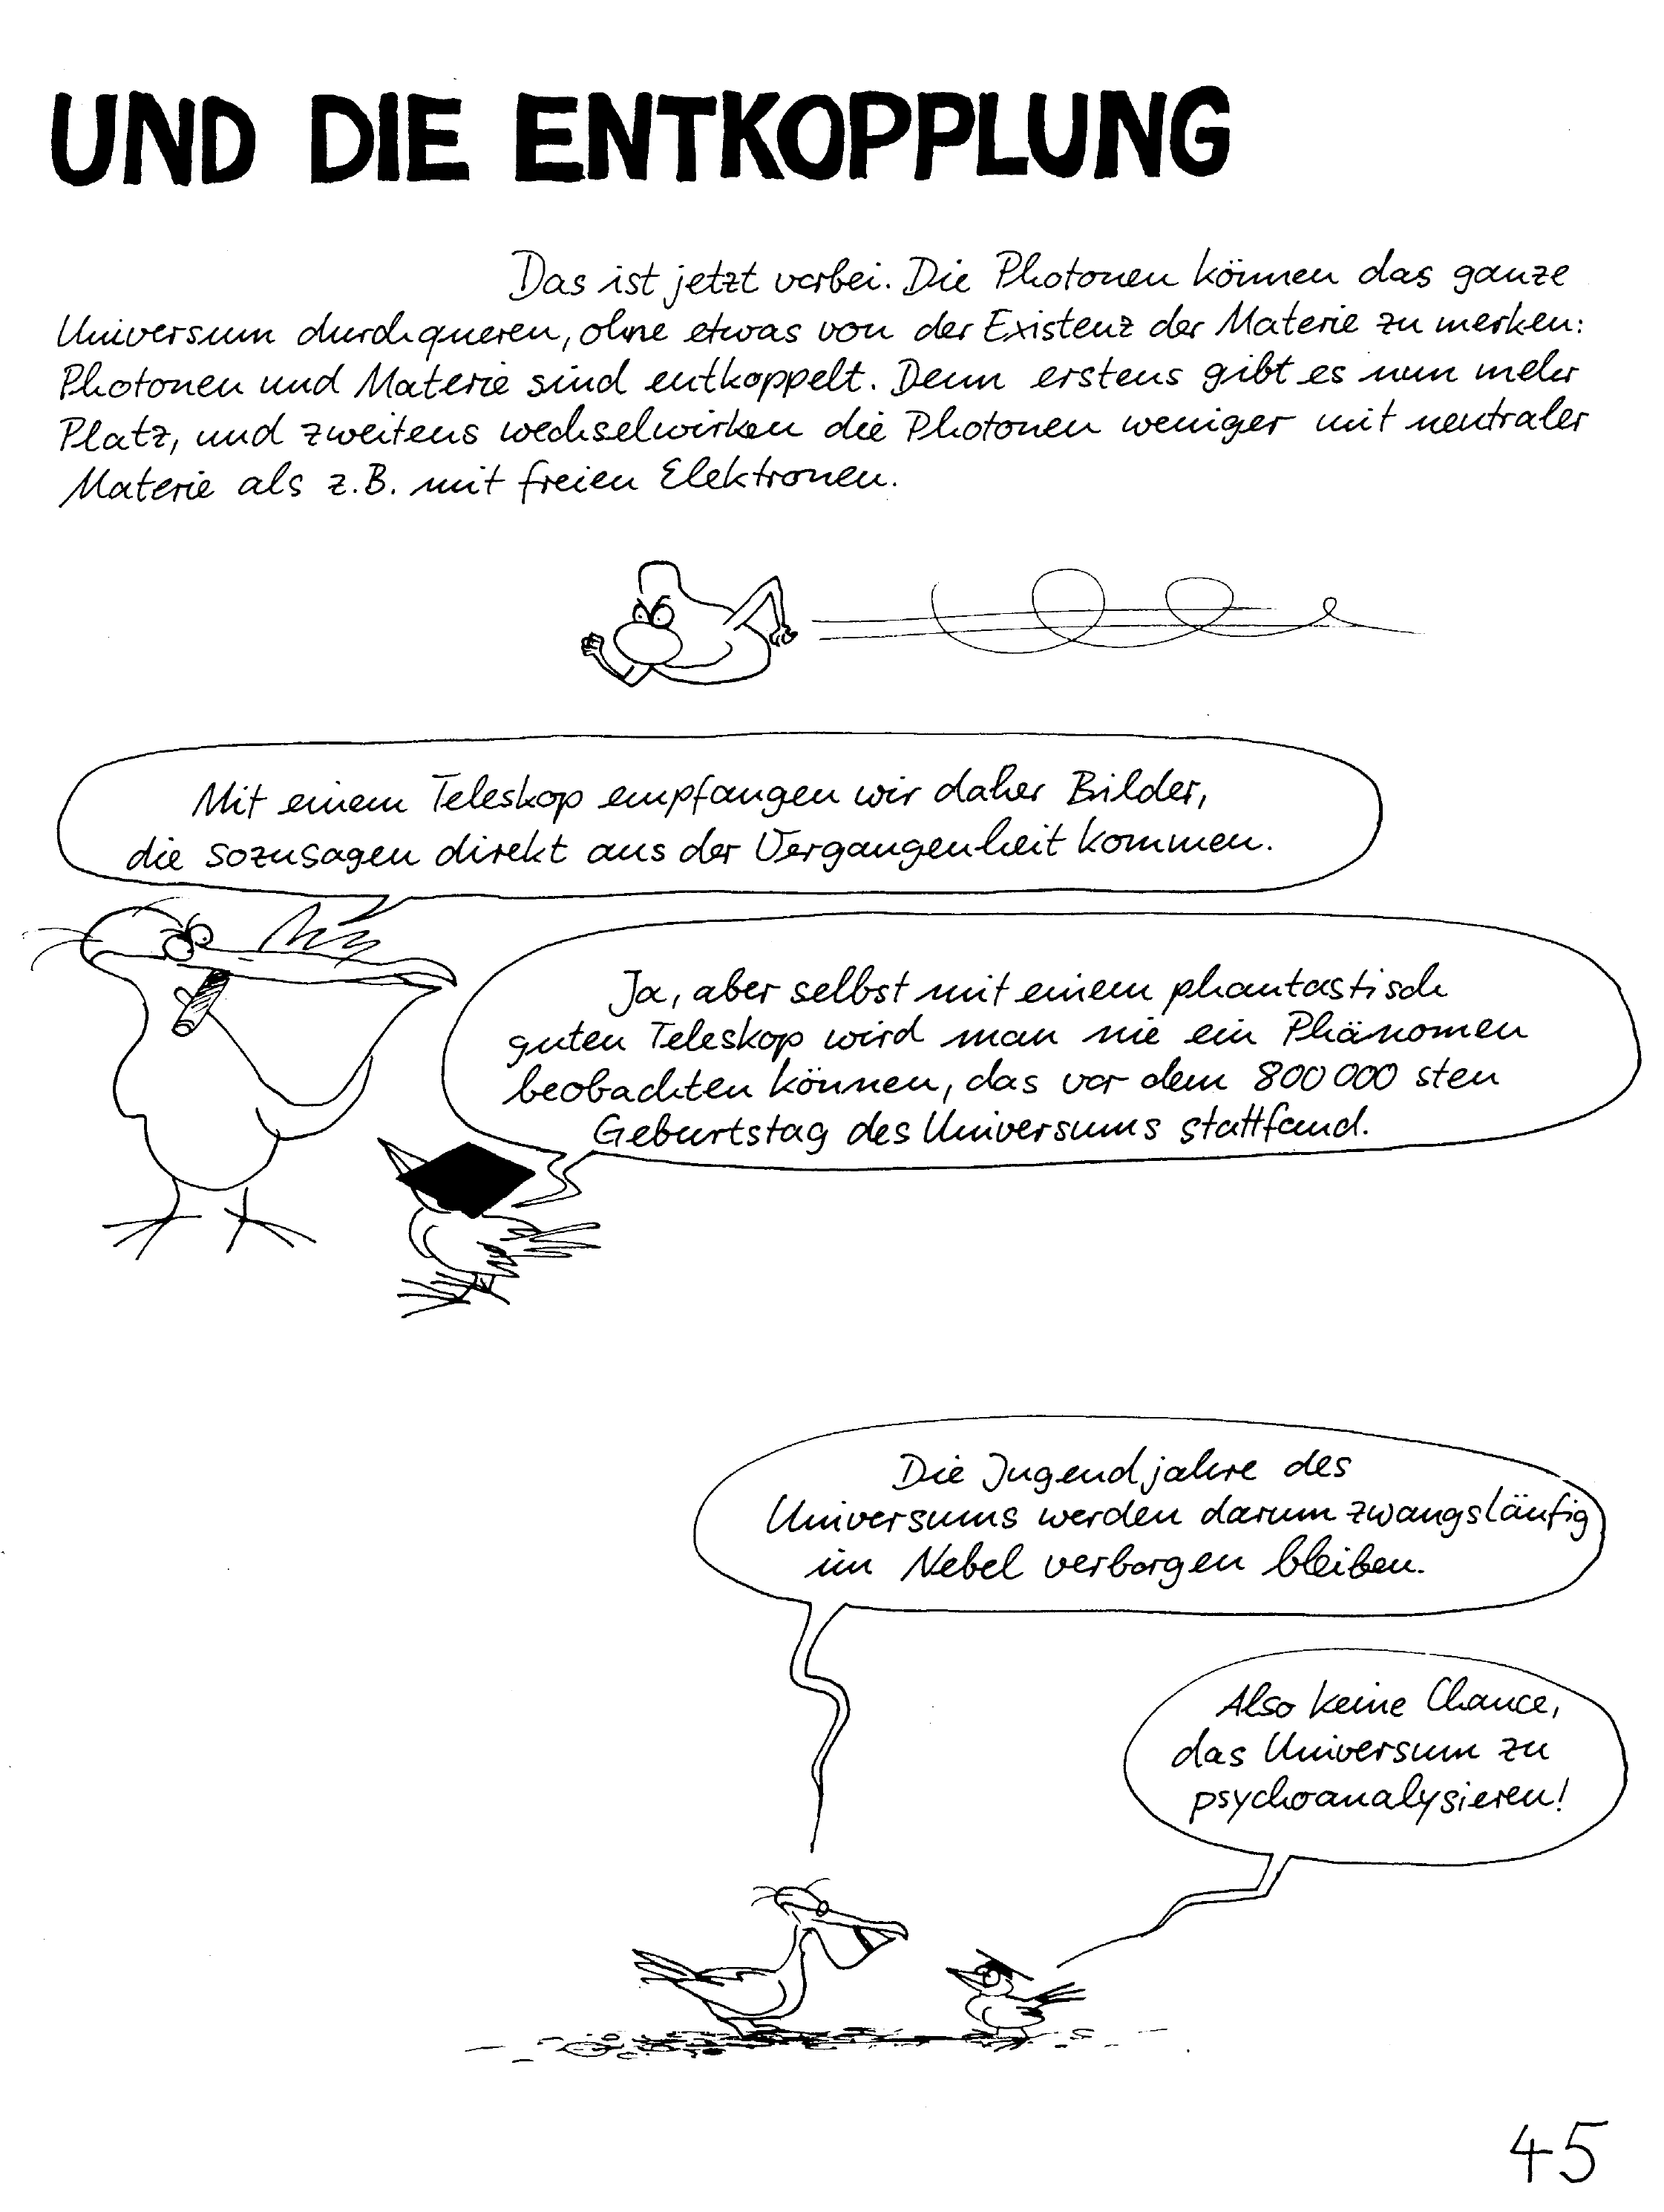 UND DIE ENTKOPPLUNG
Das ist jetzt vorbei. Die Photonen können das ganze
Universum durchqueren, ohne etwas von der Existenz der Materie zu merken:
Photonen und Materie sind entkoppelt. Denn erstens gibt es nun mehr
Platz, und zweitens wechselwirken die Photonen weniger mit neutraler
Materie als z.B. mit freien Elektronen.
Mit einem Teleskop empfangen wir daher Bilder,
die sozusagen direkt aus der Vergangenheit kommen.
Ja, aber selbst mit einem phantastisch
guten Teleskop wird man nie ein Phänomen
beobachten können, das vor dem 800 000 sten
Geburtstag des Universums stattfand.
Die Jugendjahre des
Universums werden darum zwangsläufig
im Nebel verborgen bleiben.
Also keine Chance,
das Universum zu
psychoanalysieren!
45